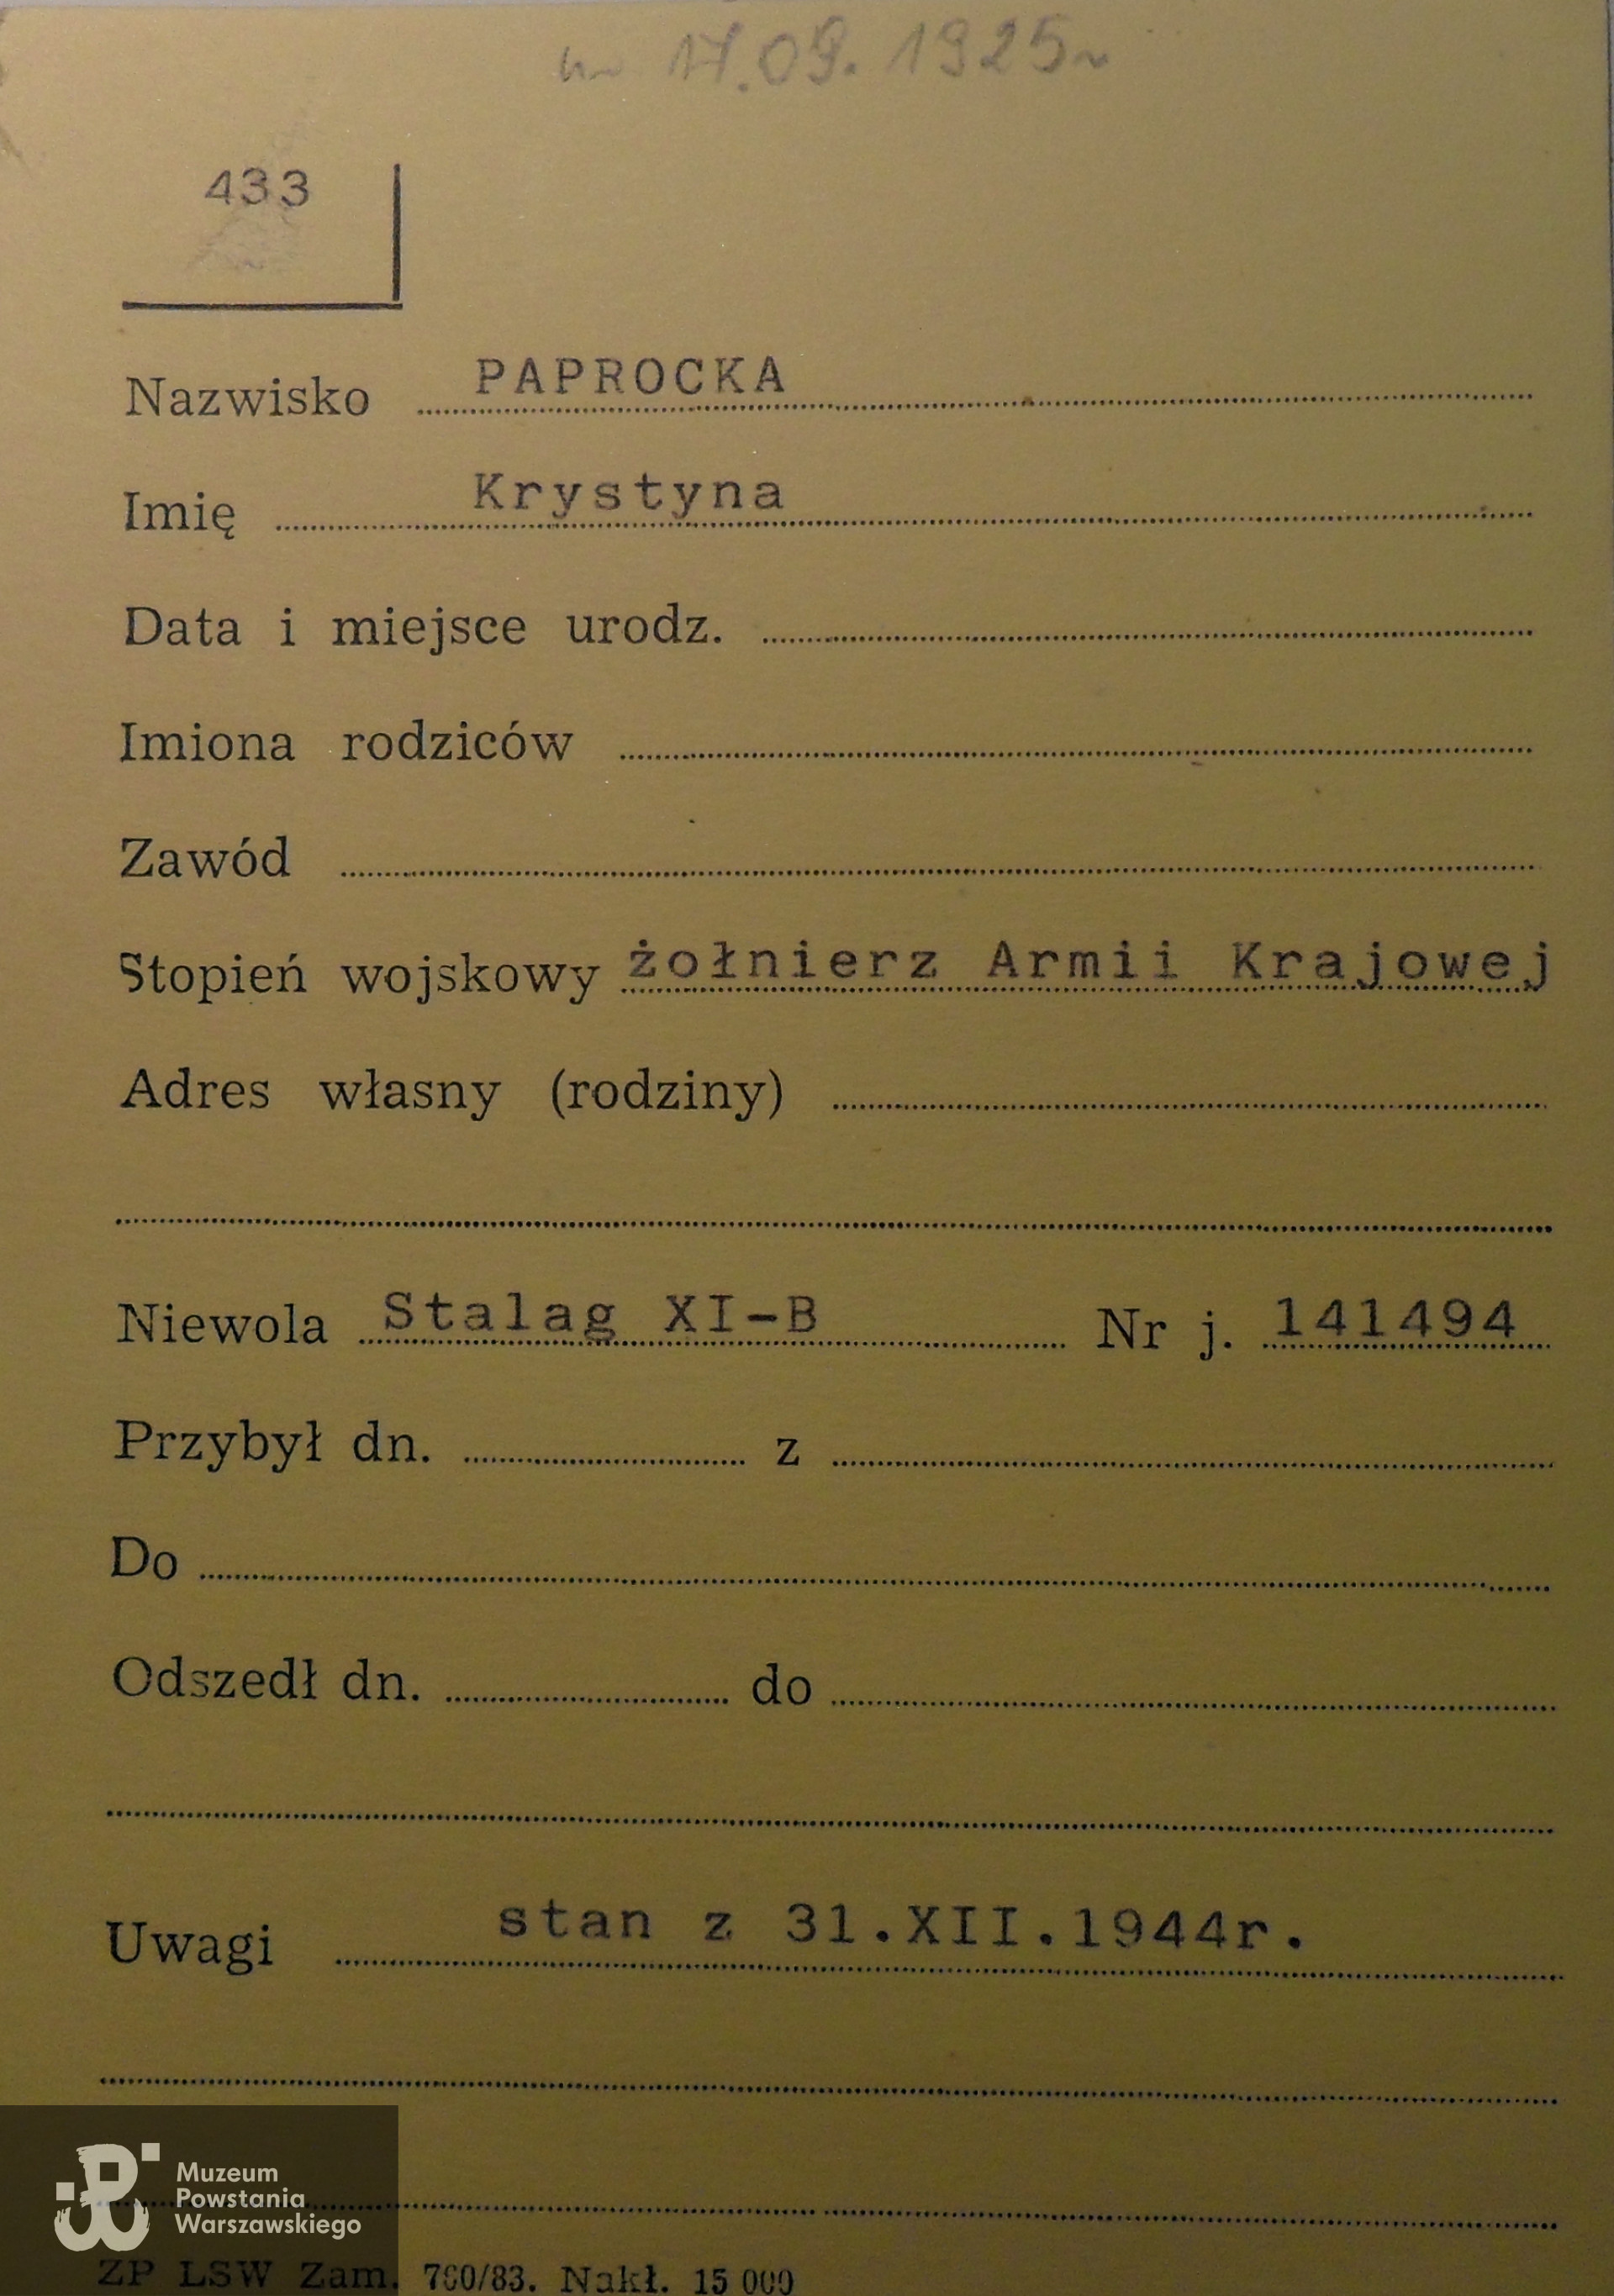 17.09.1925
433
Nazwisko PAPROCKA
Imię Krystyna
Data i miejsce urodz.
Imiona rodziców
Zawód
Stopień wojskowy żołnierz Armii Krajowej
Adres własny (rodziny)
Niewola Stalag XI-B Nr j. 141494
Przybył dn. z
Do
Odszedł dn. do
Uwagi stan z 31.XII.1944r.
Muzeum
Powstania
Warszawskiego
ZP LSW Zam. 760/83. Nakł. 15 000